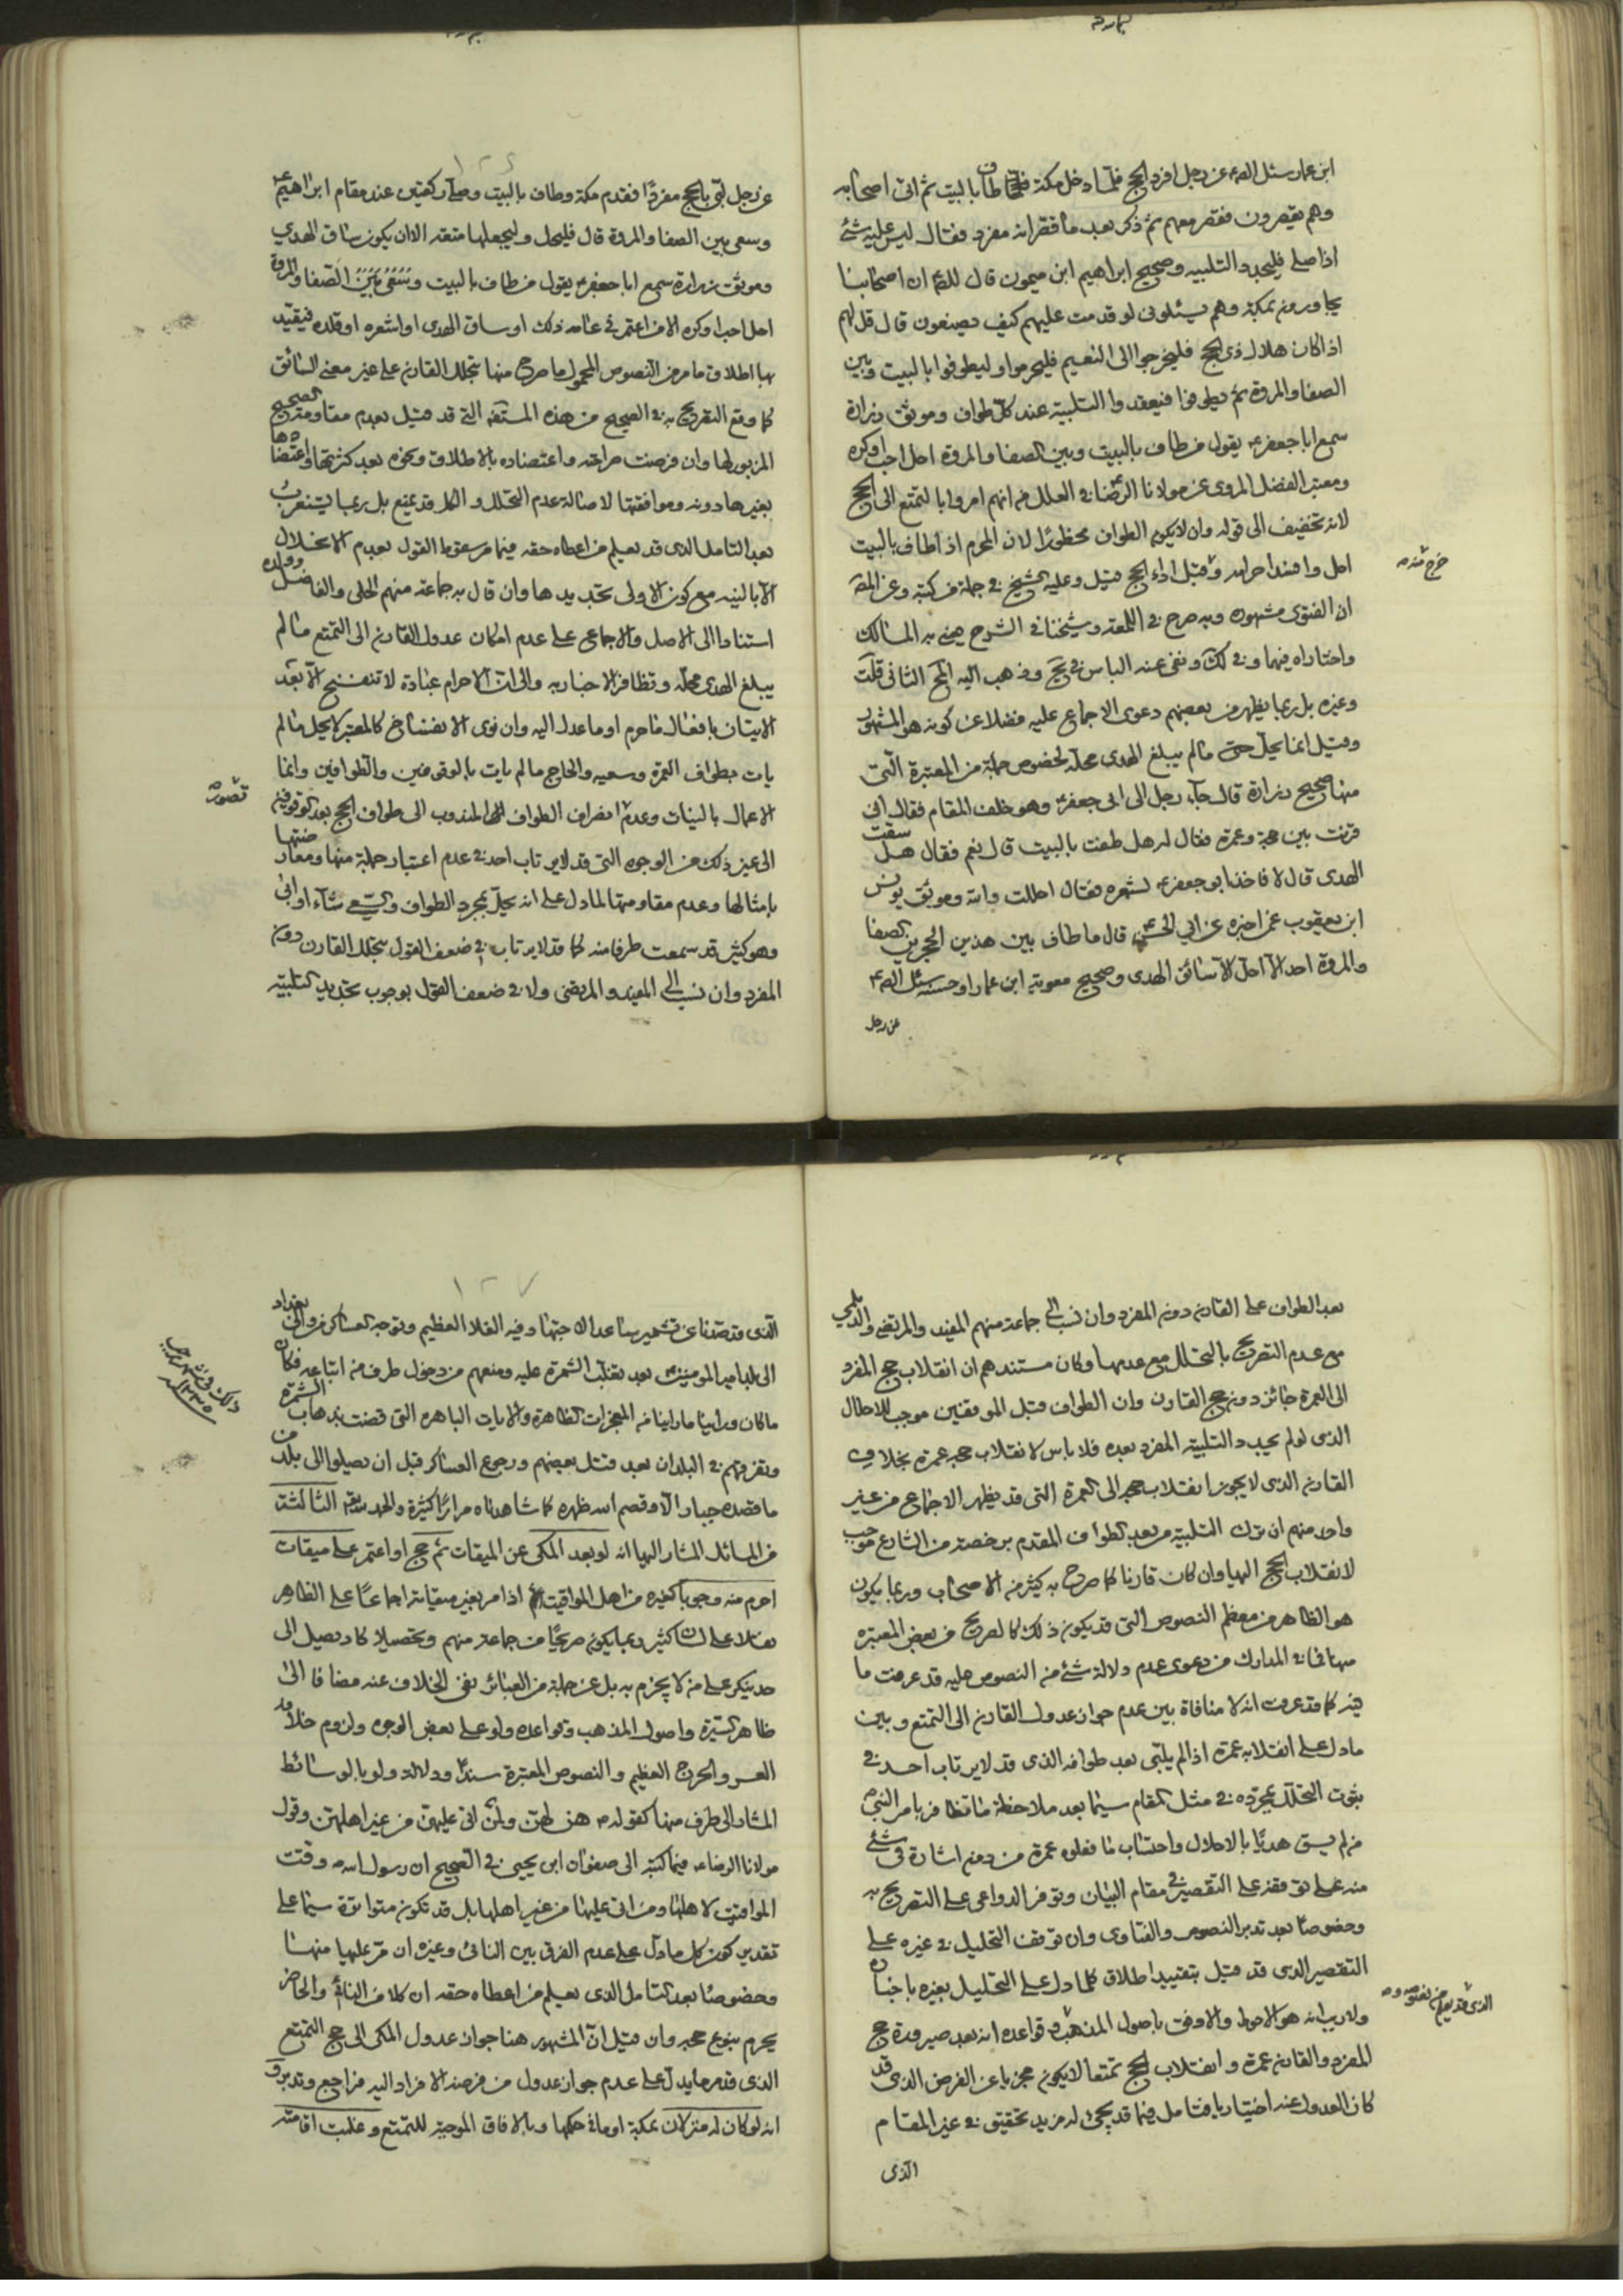 ابن عمار سئل الصم عن رجل افرد الحج فلما دخل مكة طاف بالبيت ثم اتى اصحابه
وهم يقصرون فقصر معهم ثم ذكر بعد ما قصر انه مفرد فقال ليس عليه شئ
اذا صلى فليجدد التلبيه وصحيح ابراهيم ابن ميمون قال للصم ان اصحابنا
يجاورون بمكة وهم يسئلونى لو قدمت عليهم كيف يصنعون قال قل لهم
اذا كان هلال ذى الحج فليخرجوا الى التنعيم فليحرموا وليطوفوا بالبيت وبين
الصفا والمروة ثم يطوفوا فيعقدوا التلبية عند كل طواف وموثق زرارة
سمع ابا جعفر ع يقول من طاف بالبيت وبين الصفا والمروة احل احب او كره
ومعتبر الفضل المروى عن مولانا الرضا في العلل فى انهم امروا بالتمتع الى الحج
لانه تخفيف الى قوله وان لا يكون الطواف محظورا لان المحرم اذا طاف بالبيت
احل وافسد احرامه وقبل اداء الحج قيل وعليه الشيخ في جملة من كتبه وعن
ان الفتوى مشهوره وبه صرح في اللمعة وشيخنا في الشرح
واختاراه فيها وفي لك ونفى عنه الباس في وذهب اليه المحقق الثانى قلت
وغيره بل ربما يظهر من بعضهم دعوى الاجماع عليه فضلا عن كونه هو المشهور
وقيل انما يحل حتى مالم يبلغ الهدى محله لخصوص جملة من المعتبرة التى
منها صحيح زرارة قال جاء رجل الى ابى جعفر ع وهو خلف المقام فقال انى
قرنت بين حجة وعمرة فقال له هل طفت بالبيت قال نعم فقال هل سقت
الهدى قال لا فاخذ ابو جعفر ع لشعره فقال احللت والله وموثق يونس
ابن يعقوب عمن اخبره عن ابي الحسن ع قال ما طاف بين هذين الحجرين الصفا
والمروة احد الا احل الا سائق الهدى وصحيح معوية ابن عمار او حسنه سئل الصم ع
عن رجل
عن رجل لبى بالحج مفردا فقدم مكة وطاف بالبيت وصلى ركعتين عند مقام ابراهيم ع
وسعى بين الصفا والمروة قال فليحل وليجعلها متعه الا ان يكون ساق الهدي
وموثق زرارة سمع ابا جعفر ع يقول من طاف بالبيت وسعى بين الصفا والمروة
احل احب او كره الا من اعتمر في عامه ذلك او ساق الهدى او اشعره او قلده فيقيد
بها اطلاق ما مر من النصوص المحمول ما صرح منها بتحلل القارن على غير معنى السائق
كما وقع التصريح به في الصحيح من هذه المستفيضه التى قد قيل بعدم مقاومة الصحيح
المزبور لها وان فرضت صراحته واعتضاده بالاطلاق ونحوه بعد كثرتها واعتضادها
بغيرها دونه وموافقتها لاصالة عدم التحلل والكل قد يمنع بل ربما يستغرب
بعد التامل الذى قد يعلم من اعطاه حقه فيما مر سقوط القول بعدم الاحلال
الا بالنيه مع كون الاولى تجديدها وان قال به جماعة منهم الحلى والفاضل وولده
استنادا الى الاصل والاجماع على عدم امكان عدول القارن الى التمتع مالم
يبلغ الهدى محله وتظافر الاخبار به والى ان الاحرام عبادة لا تنفسخ الا بعد
الاتيان بافعال ما احرم او ما عدل اليه وان نوى الانفساخ كالمعتمر لا يحل مالم
يات بطواف العمرة وسعيه والحاج مالم يات بالوقوفين والطوافين وانما
الاعمال بالنيات وعدم انصراف الطواف المندوب الى طواف الحج بعد الوقوفين
الى غير ذلك من الوجوه التى قد لا يرتاب احد في عدم اعتبار جملة منها ومعارضتها
بامثالها وعدم مقاومتها لما دل على انه يحل بمجرد الطواف والسعى شاء او ابى
وهو كثير قد سمعت طرفا منه كما قد لا يرتاب في ضعف القول بتحلل القارن دون
المفرد وان نسب الى المفيد والمرتضى ولا في ضعف القول بوجوب تجديد التلبيه
بعد الطواف على القارن دون المفرد وان نسب الى جماعة منهم المفيد والمرتضى والديلمى
مع عدم التصريح بالتحلل مع عدمها وكان مستندهم ان انقلاب حج المفرد
الى العمرة جائز دون حج القارن وان الطواف قبل الموقفين موجب للاحلال
الذى لو لم يجدد التلبيه المفرد بعده فلا باس لانقلاب حجه عمرة بخلاف
القارن الذى لا يجوز انقلاب حجه الى العمرة التى قد يظهر الاجماع من غير
واحد منهم ان ترك التلبية من بعد الطواف المقدم برخصة من الشارع موجب
لانقلاب الحج اليها وان كان قارنا كما صرح به كثير من الاصحاب وربما يكون
هو الظاهر من معظم النصوص التى قد يكون ذلك كالصريح من بعض المعتبره
منها فما في المدارك من دعوى عدم دلالة شئ من النصوص عليه قد عرفت ما
فيه كما قد عرفت انه لا منافاة بين عدم جواز عدول القارن الى التمتع وبين
ما دل على انقلابه عمرة اذا لم يلبى بعد طوافه الذى قد لا يرتاب احد في
ثبوت التحلل بمجرده في مثل المقام سيما بعد ملاحظة ما تظافر بامر النبى ص
من لم يسق هديا بالاحلال واحتساب ما فعلوه عمرة من دون اشارة فى شئ
منه على توقفه على التقصير في مقام البيان وتوفر الدواعى على التصريح به
وخصوصا بعد تدبر النصوص والفتاوى وان توقف التحليل في غيره على
التقصير الذى قد قيل بتقييد اطلاق كلما دل على التحليل بغيره باخباره
ولا ريب انه هو الاحوط والاوفق باصول المذهب وقواعده انه بعد صيرورة حج
المفرد والقارن عمرة وانقلاب الحج تمتعا لا يكون مجزيا عن الفرض الذى قد
كان العدول عنه اختياريا فتامل فيما قد يجئ له مزيد تحقيق في غير المقام
الذى
الذى قد صدنا عن تشمير ساعد الاجتهاد فيه الغلا العظيم وتوجه العساكر من والى بغداد
الى بلد امير المومنين ع بعد تغلب الشمرة عليه ومنعهم من دخول طرف من اتباعه فكان
ما كان وراينا ما راينا من المعجزات الظاهرة والايات الباهره التى قضت بذهاب الشمرة
وتفرقهم في البلدان بعد قتل بعضهم ورجوع العساكر قبل ان يصلوا الى بلد من
ما قصده جبار الا وقصم الله ظهره كما شاهدناه مرارا كثيرة والحمد لله الثالثة
من المسائل المشار اليها انه لو بعد المكى عن الميقات ثم حج او اعتمر على ميقات
احرم منه وجوبا كغيره من اهل المواقيت اذا مر بغير ميقاته اجماعا على الظاهر
نقلا على لسان كثير ربما يكون صريحا من جماعة منهم وتحصيلا كاد يصل الى
حد ينكر على من لا يجزم به بل عن جملة من العبائر نفى الخلاف عنه مضافا الى
ظاهر السيرة واصول المذهب وقواعده ولو على بعض الوجوه ولزوم خلافه
العسر والحرج العظيم والنصوص المعتبرة سندا ودلالة ولو بالوسائط
المشار الى طرف منها كقوله ص هن لهن ولمن اتى عليهن من غير اهلهن وقول
مولانا الرضا ع فيما كتبه الى صفوان ابن يحيى في الصحيح ان رسول الله ص وقت
المواقيت لاهلها ومن اتى عليها من غير اهلها بل قد تكون متواترة سيما على
تقدير كون كل ما دل على عدم الفرق بين النائى وغيره ان مر عليها منها
وخصوصا بعد التامل الذى يعلم من اعطاه حقه ان كلا من النائى والحاضر
يحرم بنوع حجه وان قيل ان المشهور هنا جواز عدول المكى الى حج التمتع
الذى قد مر ما يدل على عدم جواز عدول من فرضه الافراد اليه فراجع وتدبر و
انه لو كان له منزلان بمكة او ما في حكمها وبالافاق الموجبة للتمتع وغلبت اقامته